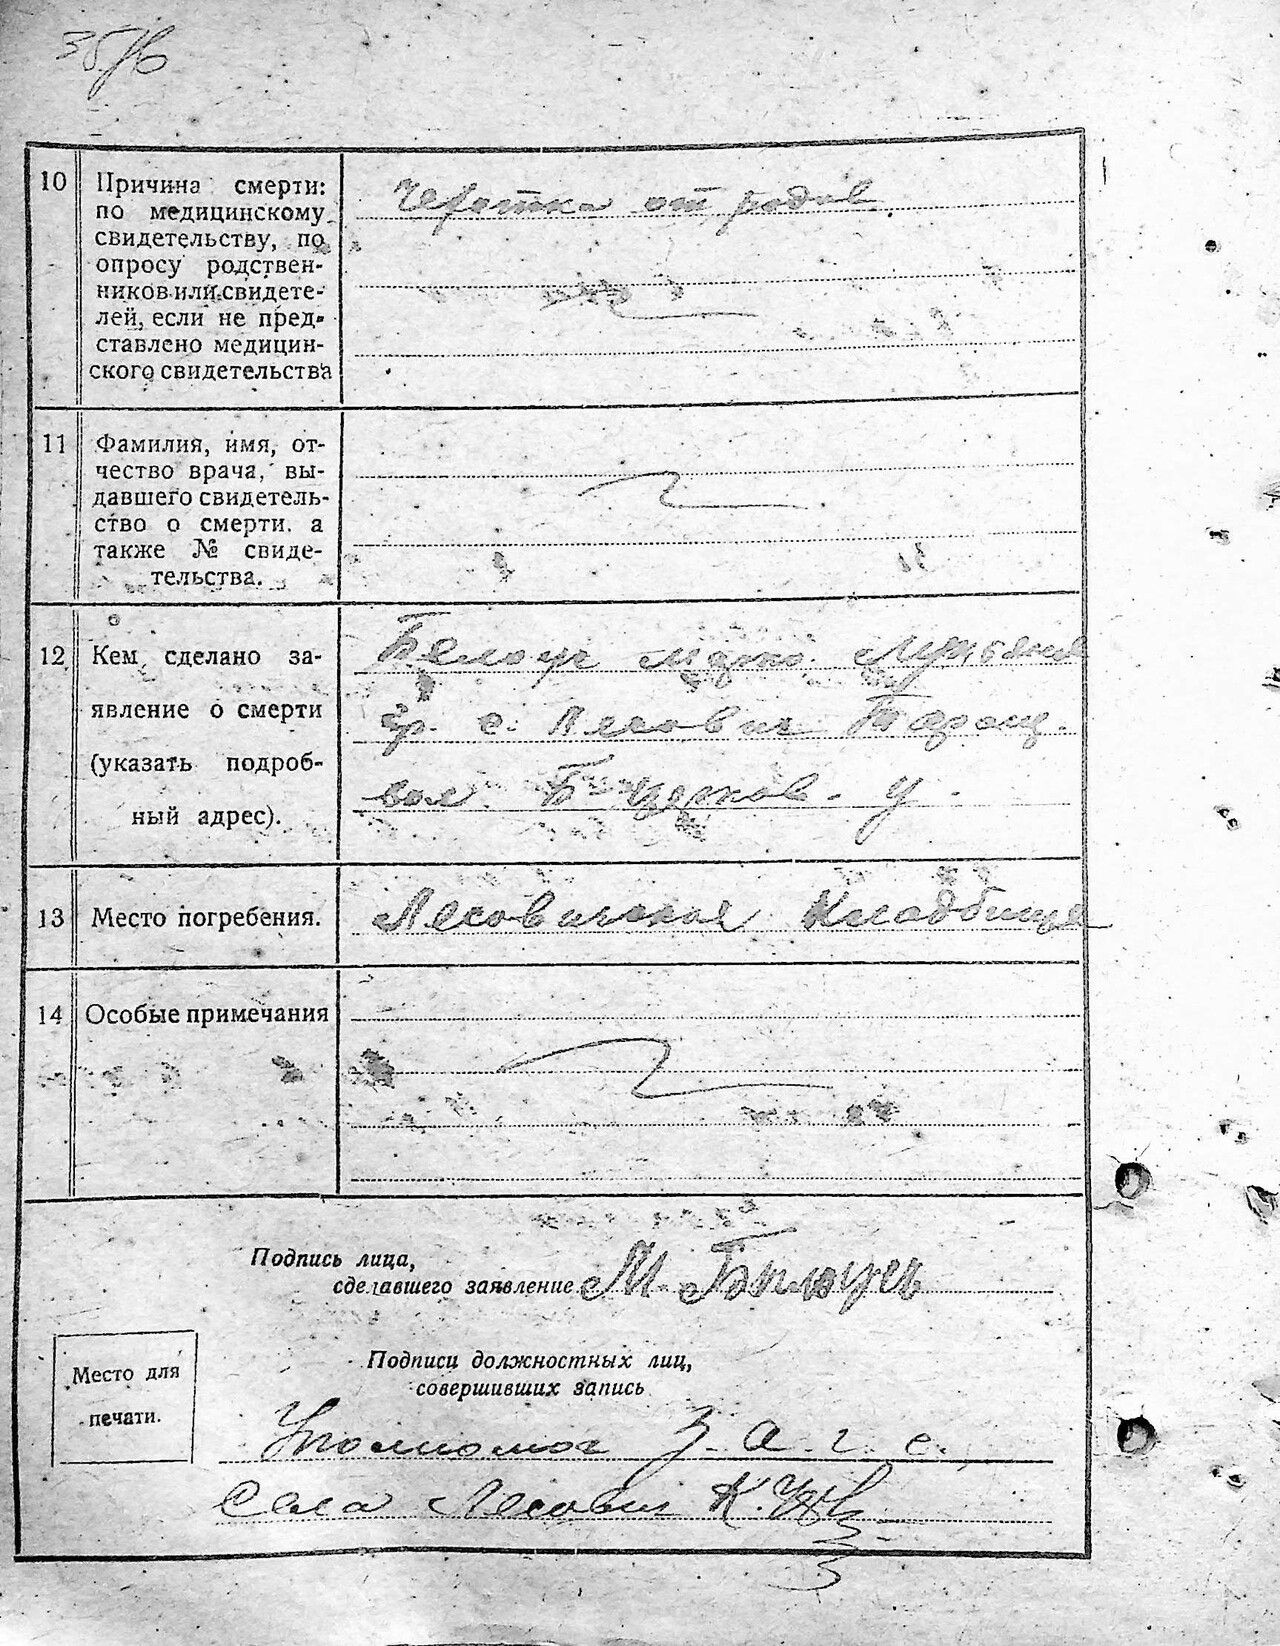 10 Причина смерти:
по медицинскому
свидетельству, по
опросу родствен-
ников или свидете-
лей, если не пред-
ставлено медицин-
ского свидетельства
от родов
11 Фамилия, имя, от-
чество врача, вы-
давшего свидетель-
ство о смерти. а
также № свиде-
тельства.
12 Кем сделано за-
явление о смерти
(указать подроб-
ный адрес).
Белоус
гр. с. Лесович Таращ.
вол. Б Церков. у.
13 Место погребения.
Лесовичское Кладбище
14 Особые примечания
Подпись лица,
сделавшего заявление М. Билоусь
Место для
печати.
Подписи должностных лиц,
совершивших запись
Уполномоч З. а. г. с.
Села Лесович К.